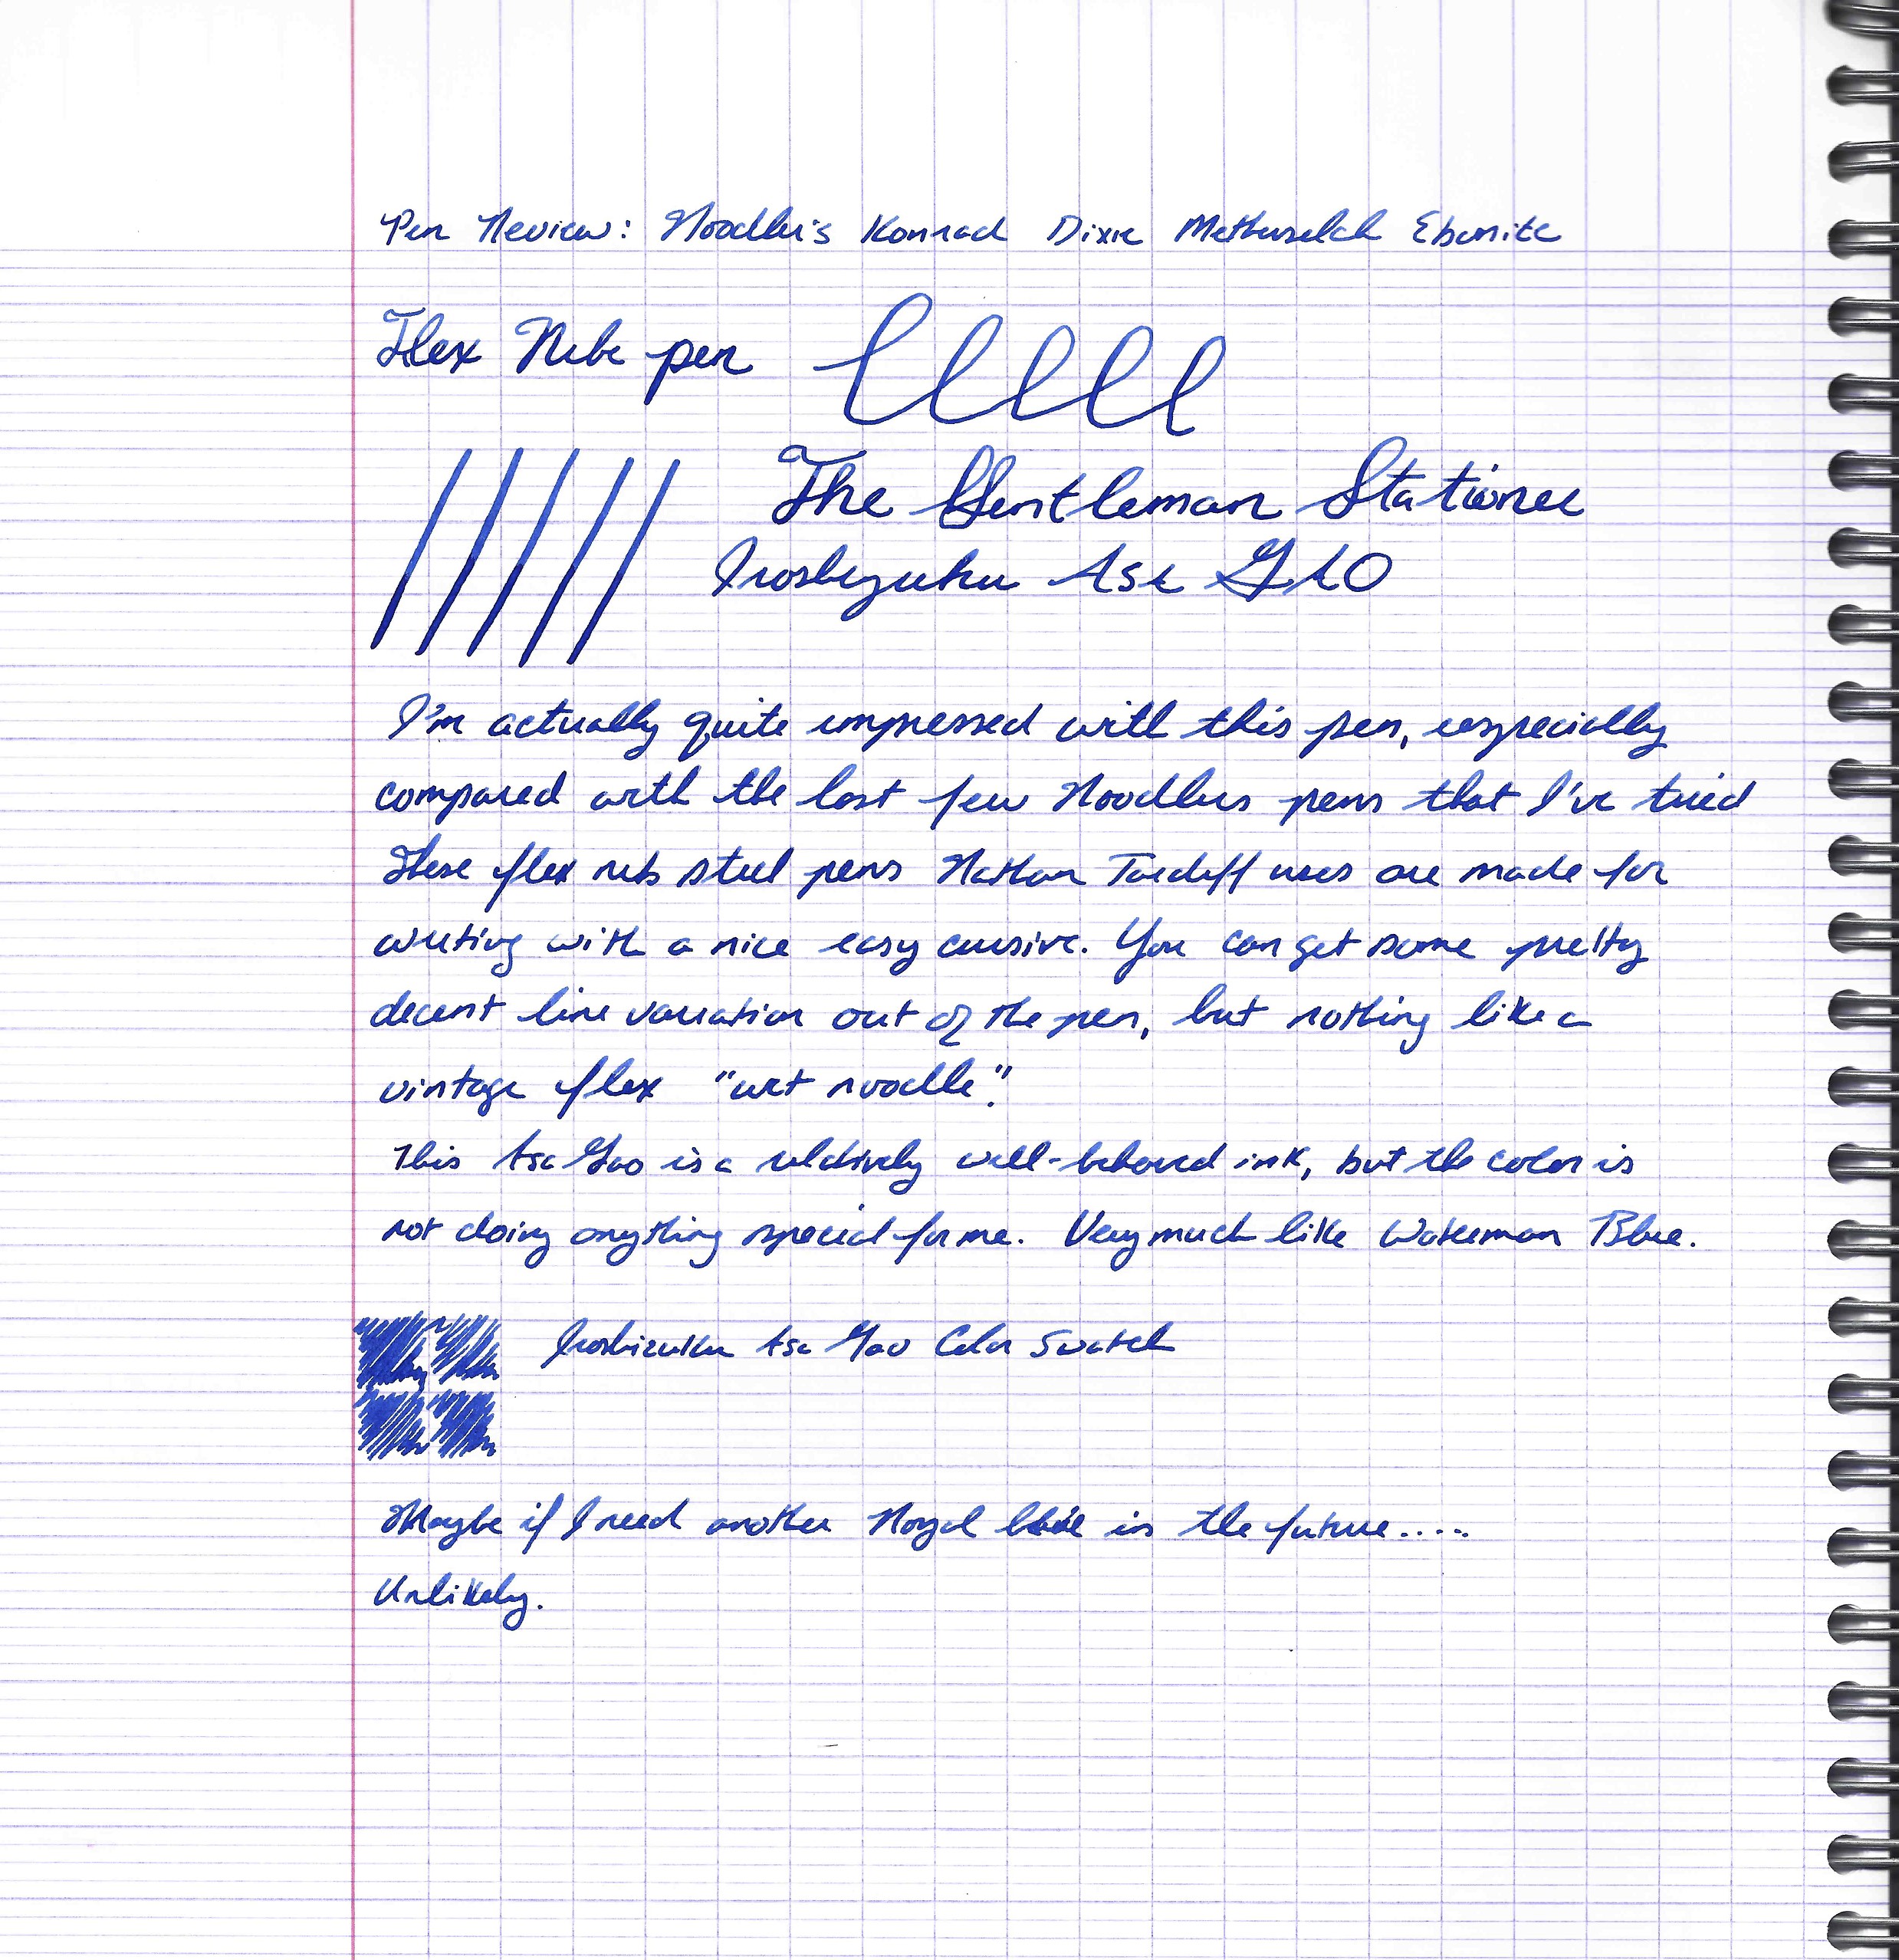 Pen Review: Noodler's Konrad Dixie Methuselah Ebonite
Flex Nib pen
The Gentleman Stationer
Iroshizuku Asa GAO
I'm actually quite impressed with this pen, especially
compared with the last few Noodlers pens that I've tried
These flex nib steel pens Nathan Tardiff uses are made for
writing with a nice easy cursive. You can get some pretty
decent line variation out of the pen, but nothing like a
vintage flex "wet noodle".
This Asa Gao is a relatively well-behaved ink, but the color is
not doing anything special for me. Very much like Waterman Blue.
Iroshizuku Asa Gao Color Swatch
Maybe if I need another Royal blue in the future....
Unlikely.